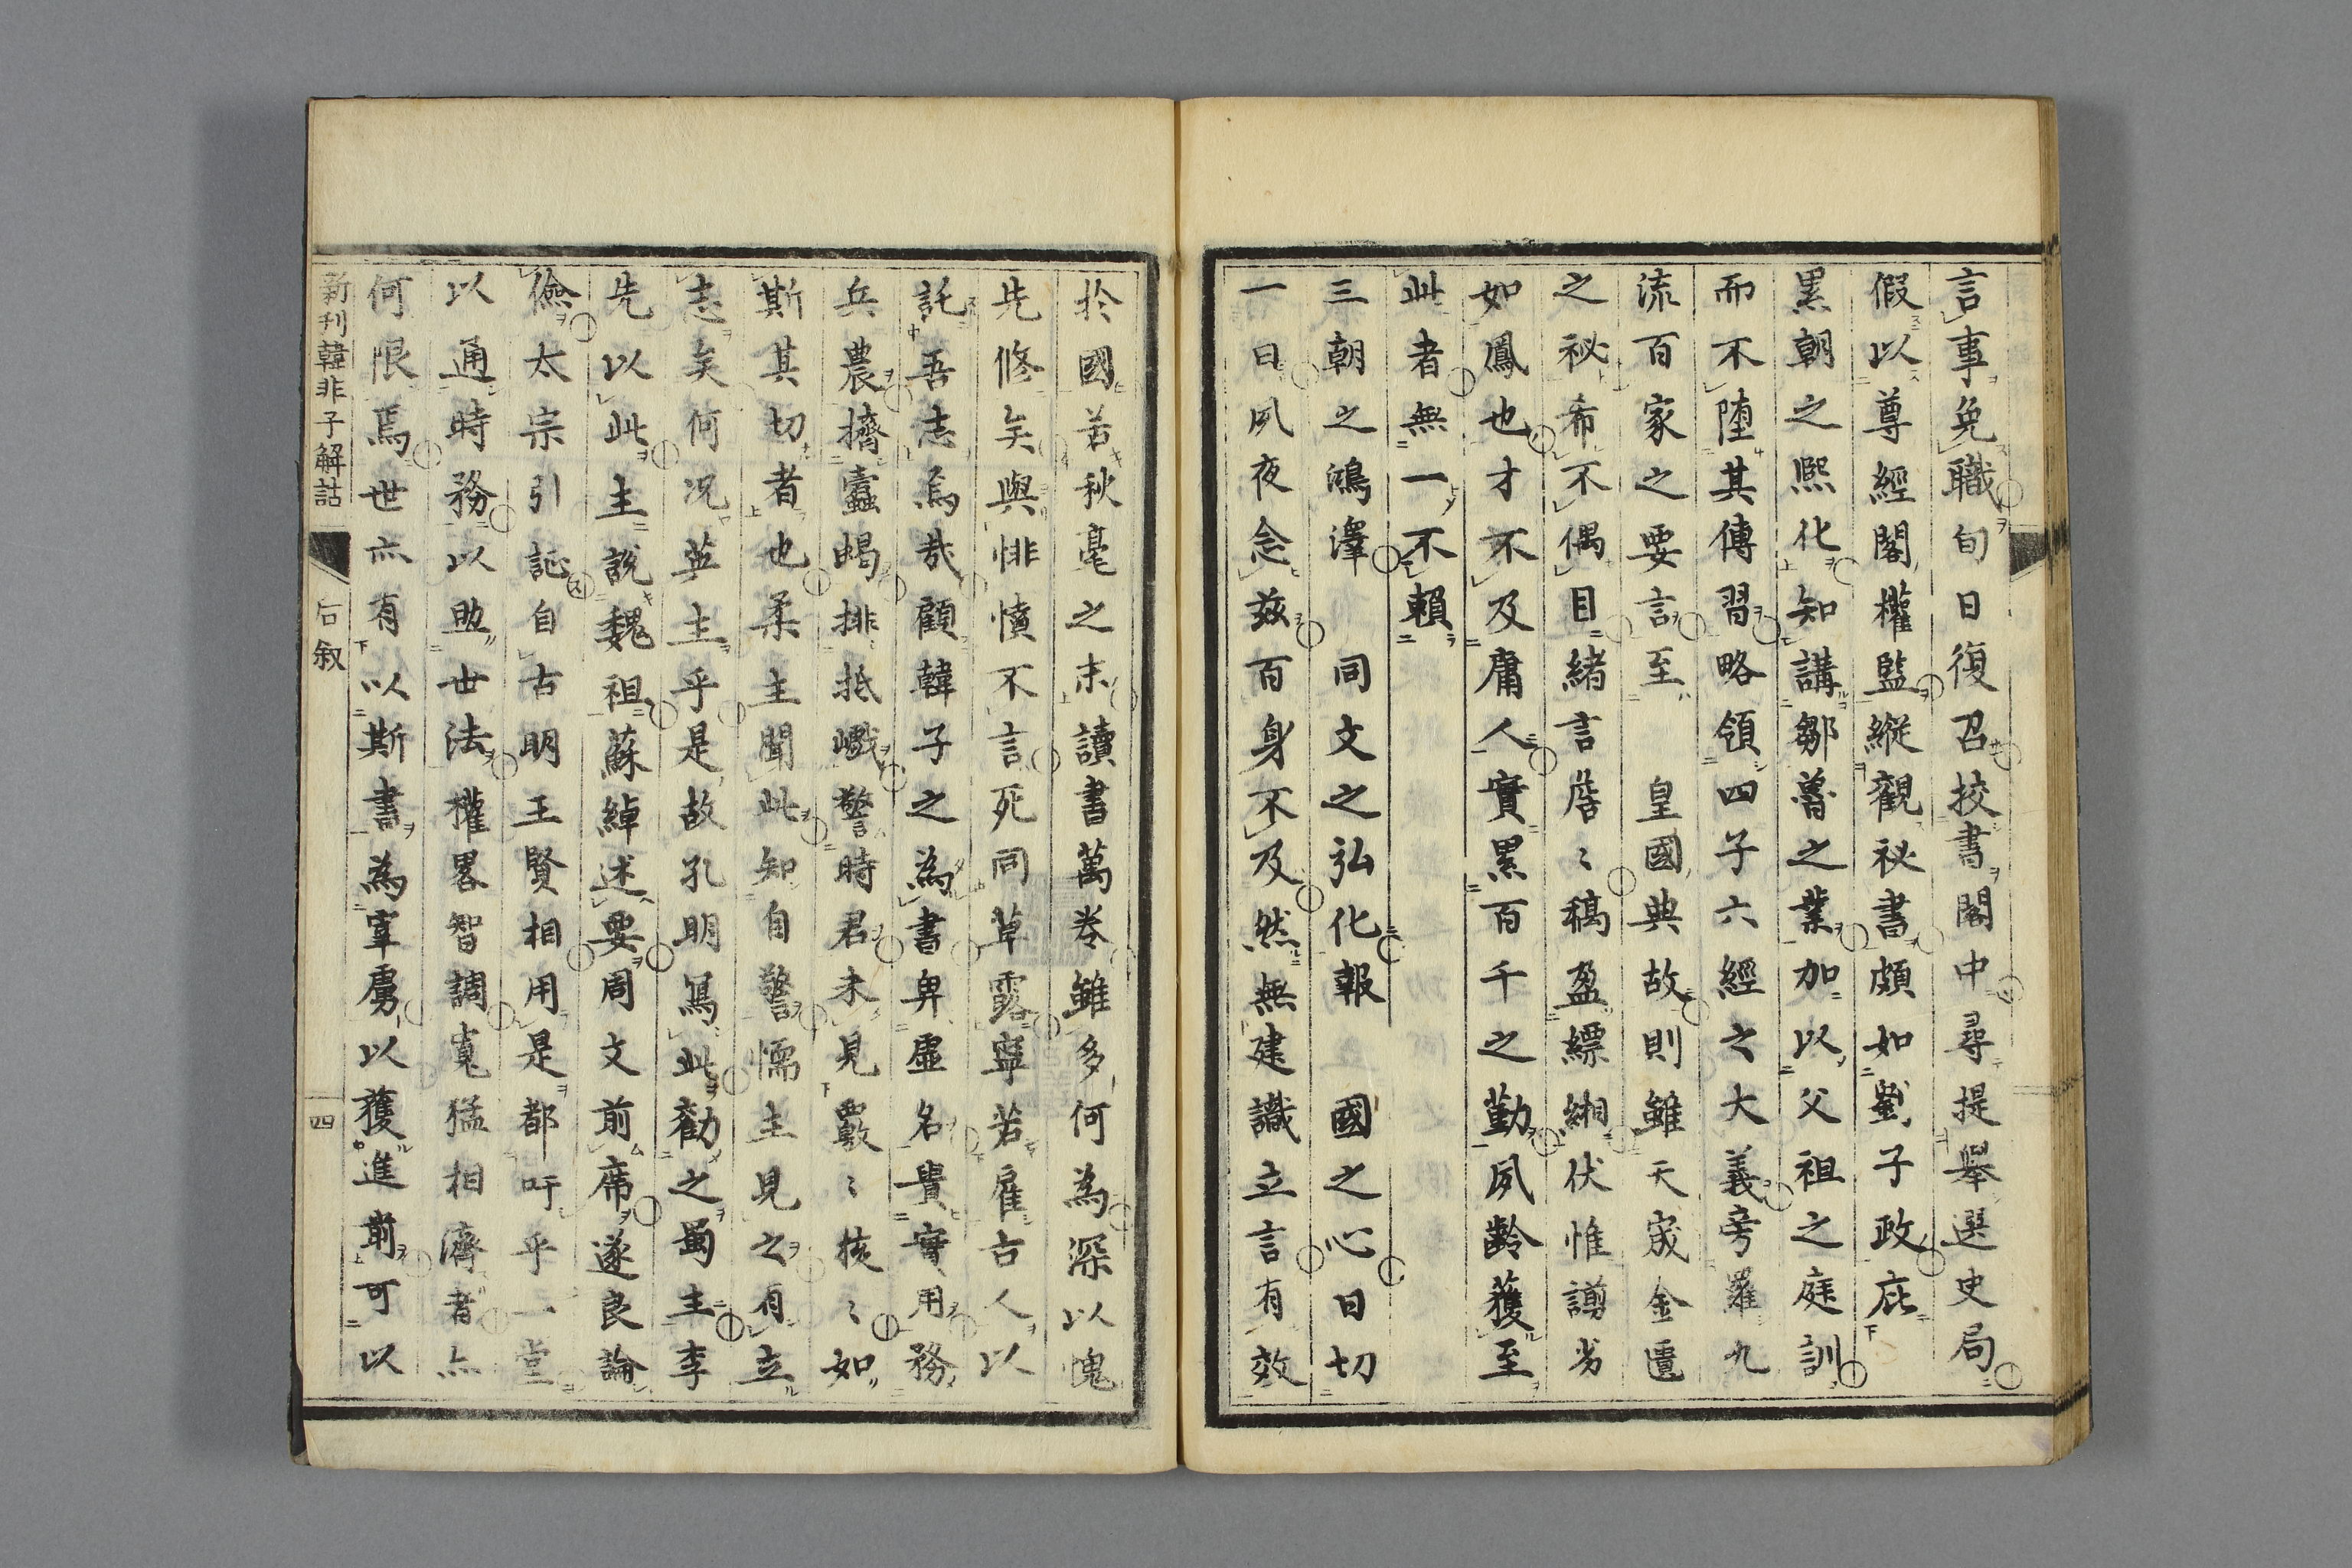 言事免職旬日復召挍書閣中尋提舉選史局
假以尊經閣權監縱觀祕書頗如劉子政庇
累朝之熈化知講鄒魯之業加以父祖之庭訓
而不墮其傳習略領四子六經之大義旁羅九
流百家之要言至 皇國典故則雖天宬金匱
之祕希不偶目緒言詹〻稿盈縹緗伏惟謭劣
如鳳也才不及庸人實累百千之勤夙齡獲至
此者無一不賴
三朝之鴻澤 同文之弘化報 國之心日切
一日夙夜念兹百身不及然無建議立言有效
於國苦秋毫之末讀書萬卷雖多何為深以愧
先修矣與悱憤不言死同草露寧若雇古人以
託吾志焉哉顧韓子之為書卑虛名貴實用務
兵農擠蠹蝎排抵巇警時君未見覈〻核〻如
斯其切者也柔主聞此知自警懦主見之有立
志矣何況英主乎是故孔明寫此勸之蜀主李
先以此主說魏祖蘇綽述要周文前席遂良論
儉太宗引証自古明王賢相用是都吁乎一堂
以通時務以匡世法權畧智調寬猛相濟者亦
何限焉世亦有以斯書為寧虜以獲進前可以
新刊韓非子解詁
后叙
四